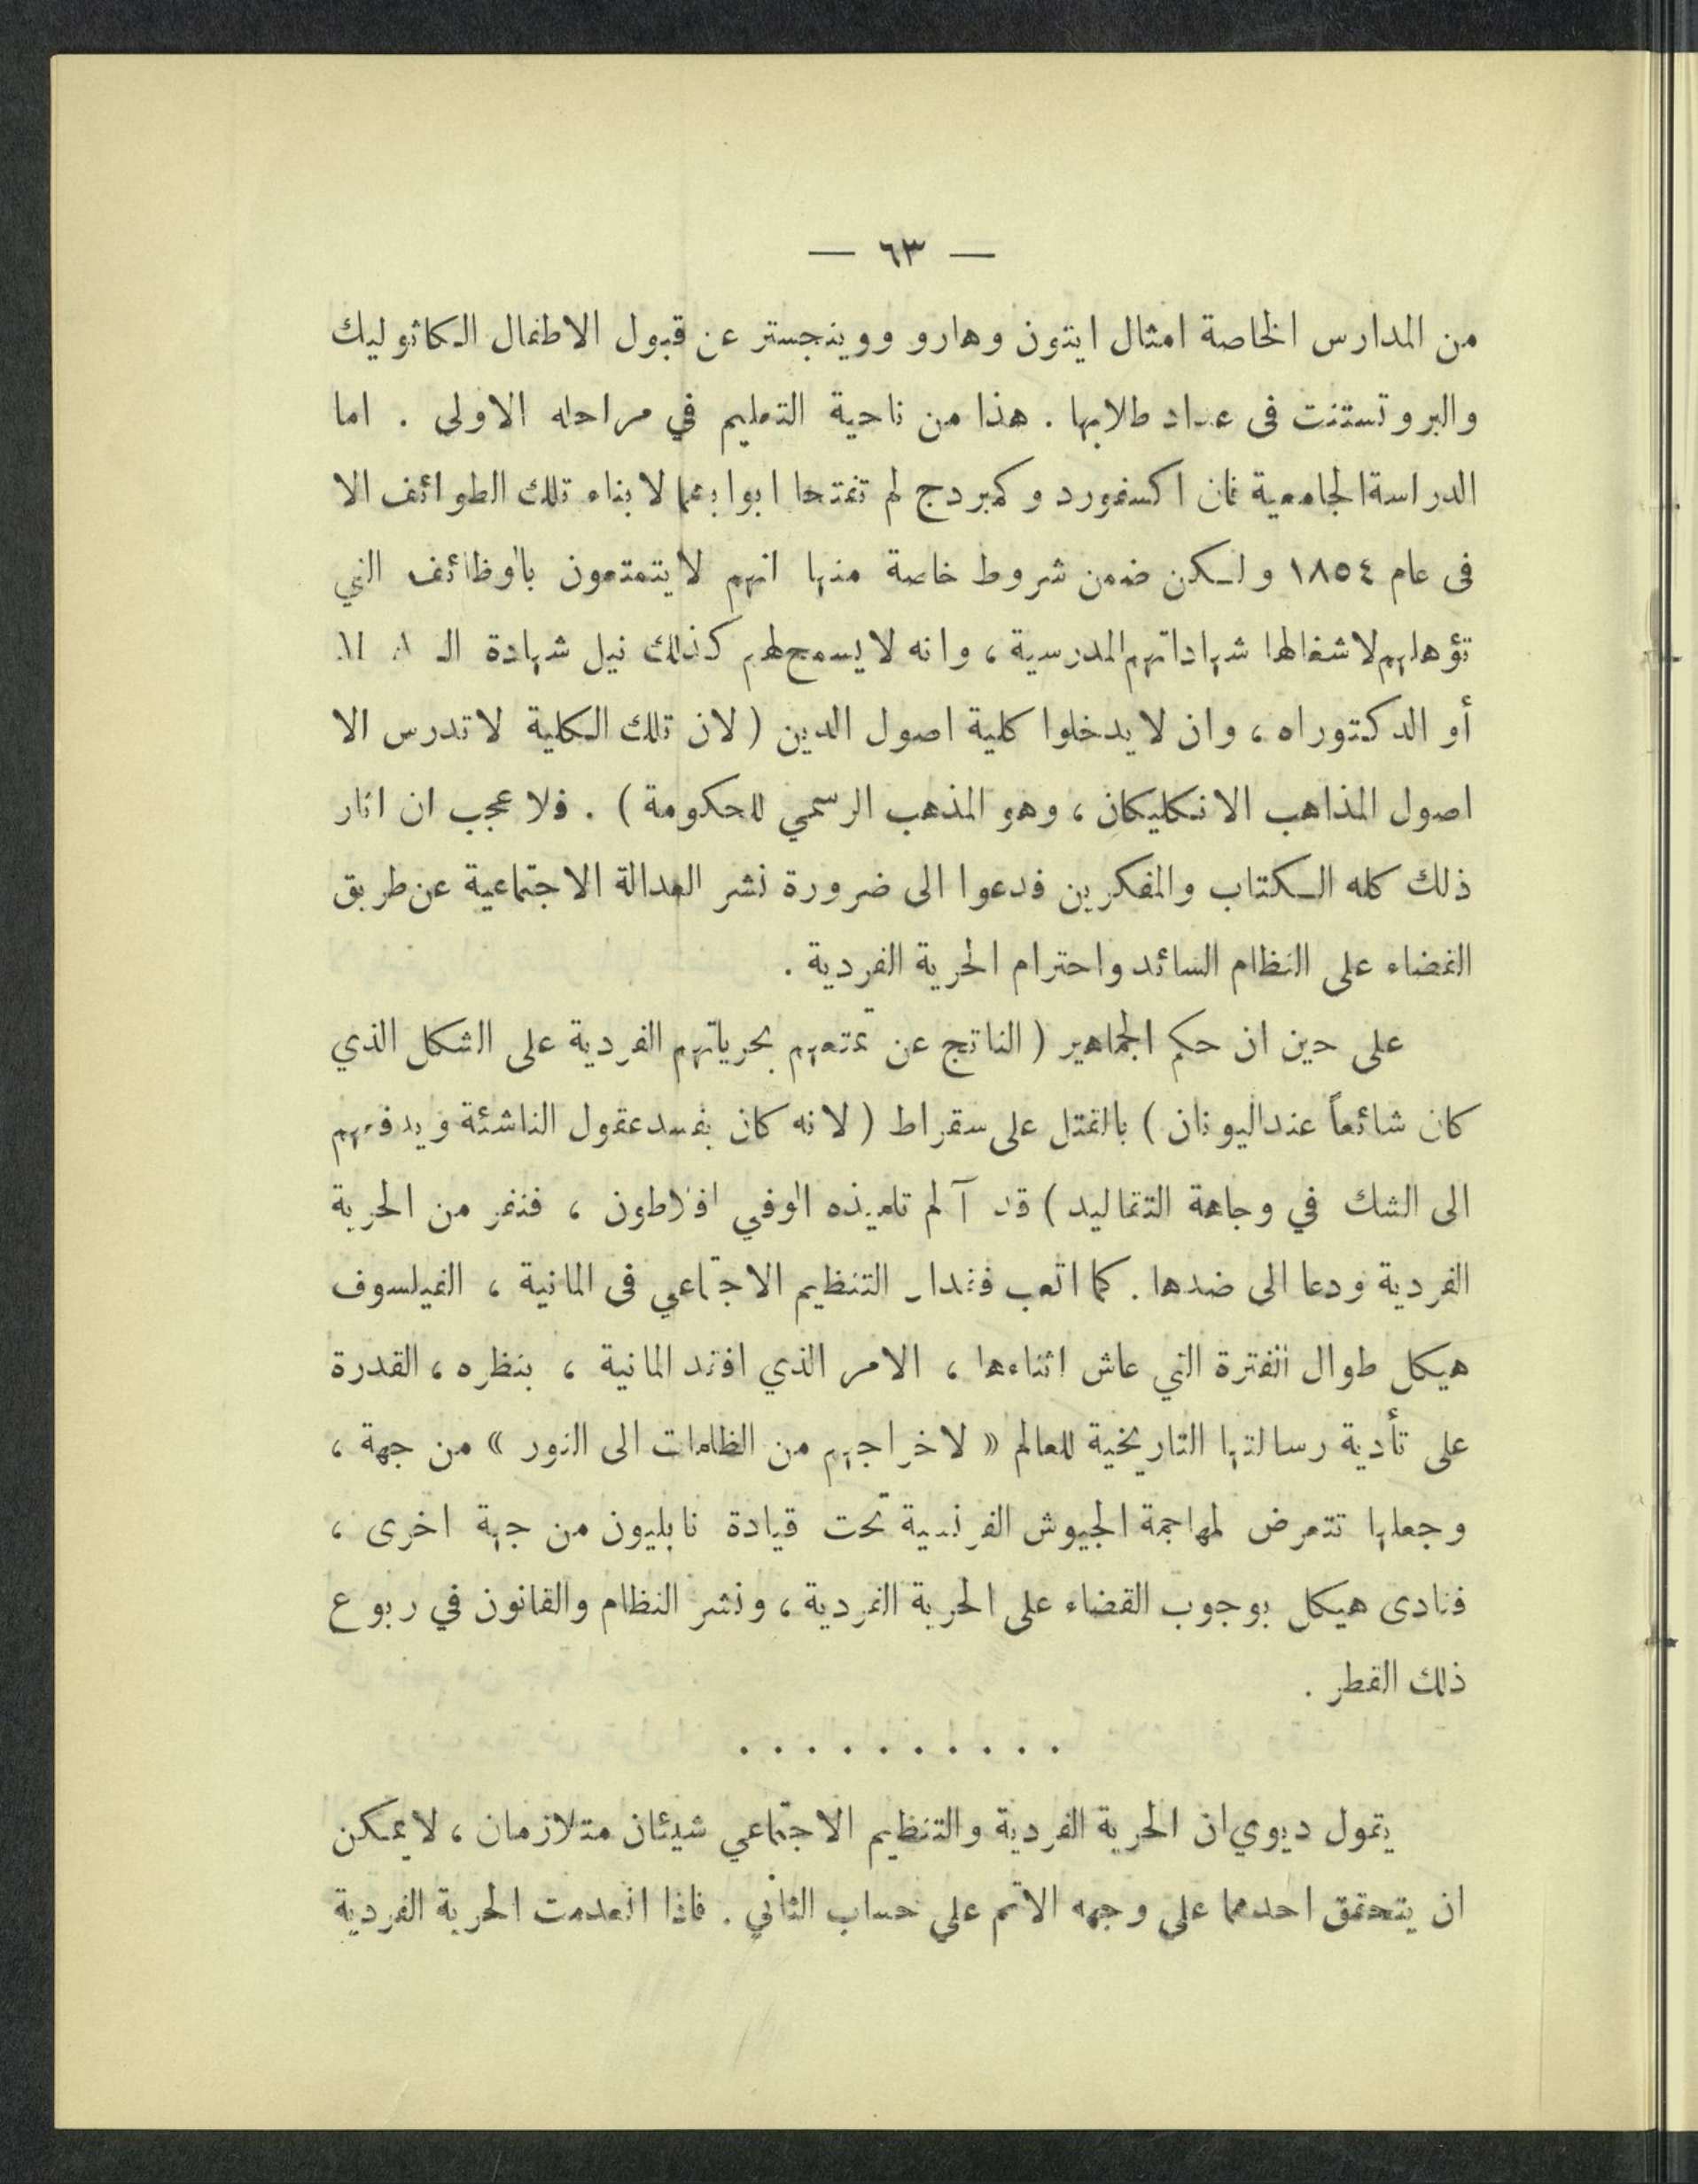 — ٦٣ —
من المدارس الخاصة امثال ايتون وهارو ووينجستر عن قبول الاطفال الكاثوليك
والبروتستنت فى عداد طلابها . هذا من ناحية التعليم في مراحله الاولى . اما
الدراسة الجامعية فان اكسفورد وكمبردج لم تفتحا ابوابهما لابناء تلك الطوائف الا
فى عام ١٨٥٤ ولكن ضمن شروط خاصة منها انهم لا يتمتعون بالوظائف التي
تؤهلهم لاشغالها شهاداتهم المدرسية ، وانه لا يسمح لهم كذلك نيل شهادة الـ
أو الدكتوراه ، وان لا يدخلوا كلية اصول الدين ( لان تلك الكلية لا تدرس الا
اصول المذاهب الانكليكان ، وهو المذهب الرسمي للحكومة ) . فلا عجب ان اثار
ذلك كله الكتاب والمفكرين فدعوا الى ضرورة نشر العدالة الاجتماعية عن طريق
القضاء على النظام السائد واحترام الحرية الفردية .
على حين ان حكم الجماهير ( الناتج عن تمتعهم بحرياتهم الفردية على الشكل الذي
كان شائعاً عند اليونان ) بالقتل على سقراط ( لانه كان يفسد عقول الناشئة ويدفعهم
الى الشك في وجاهة التقاليد ) قد آلم تلميذه الوفي افلاطون ، فنفر من الحرية
الفردية ودعا الى ضدها . كما اتعب فقدان التنظيم الاجتماعي فى المانية ، الفيلسوف
هيكل طوال الفترة التي عاش اثناءها ، الامر الذي افقد المانية ، بنظره ، القدرة
على تأدية رسالتها التاريخية للعالم « لاخراجهم من الظلمات الى النور » من جهة ،
وجعلها تتعرض لمهاجمة الجيوش الفرنسية تحت قيادة نابليون من جهة اخرى ،
فنادى هيكل بوجوب القضاء على الحرية الفردية ، ونشر النظام والقانون في ربوع
ذلك القطر .
. . . . . . . . . .
يقول ديوي ان الحرية الفردية والتنظيم الاجتماعي شيئان متلازمان ، لا يمكن
ان يتحقق احدهما على وجهه الاتم على حساب الثاني . فاذا انعدمت الحرية الفردية